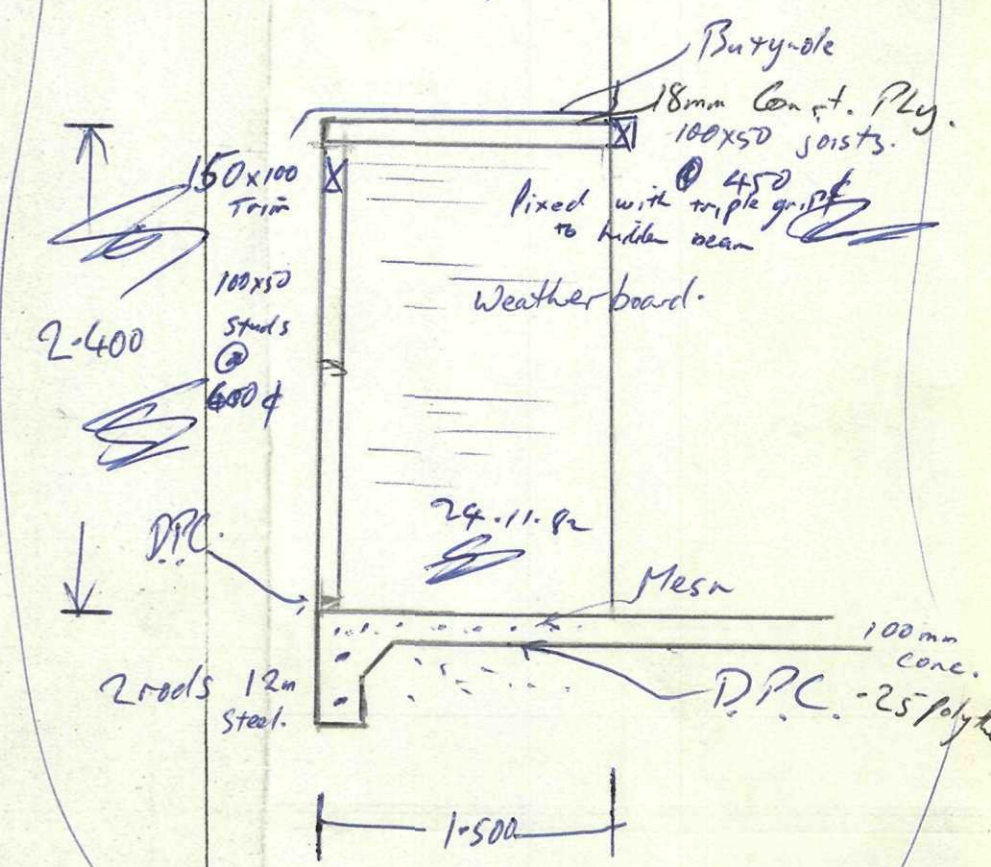 Butynole
18mm Const. Ply.
100x50 joists.
@ 450 ¢
fixed with triple grips
to hidden beam
150x100
Trim
100x50
studs
@
600 ¢
Weatherboard.
2.400
24.11.82
DPC.
Mesh
100mm
conc.
2 rods 12m
Steel.
D.P.C. -25 poly
1.500